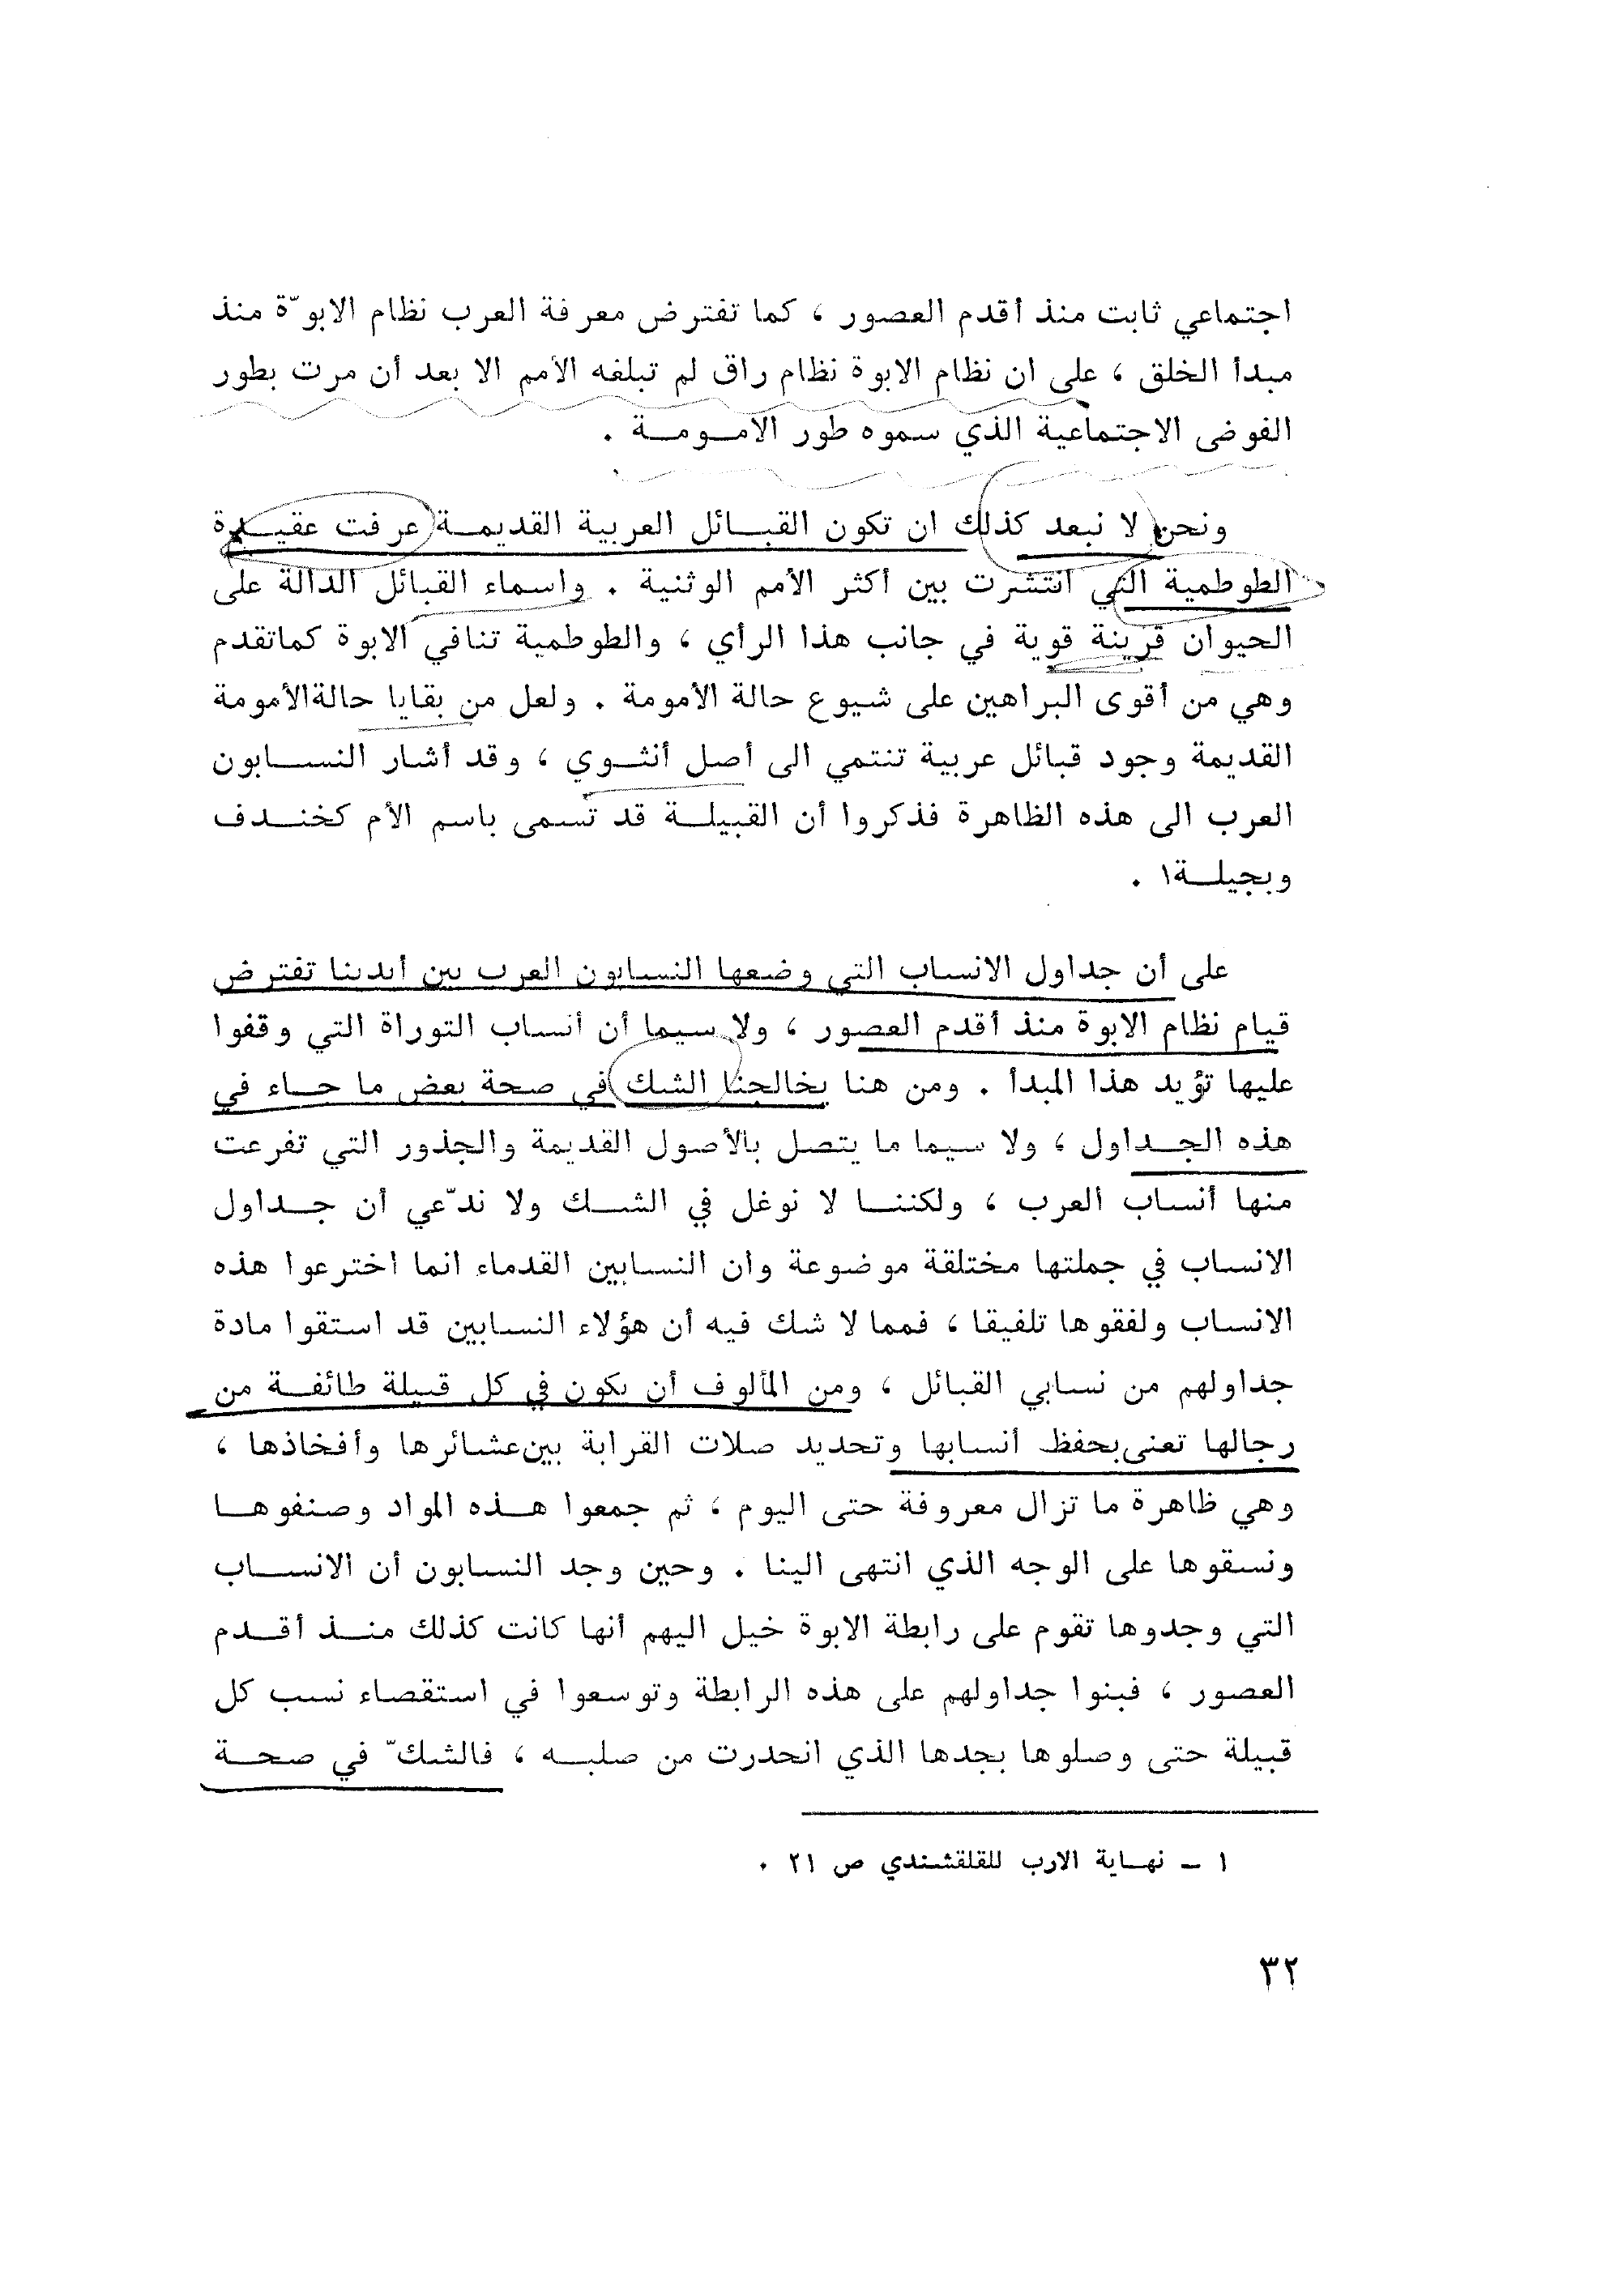 اجتماعي ثابت منذ أقدم العصور ، كما تفترض معرفة العرب نظام الابوّة منذ
مبدأ الخلق ، على ان نظام الابوة نظام راق لم تبلغه الأمم الا بعد أن مرت بطور
الفوضى الاجتماعية الذي سموه طور الامومة .
ونحن لا نبعد كذلك ان تكون القبائل العربية القديمة عرفت عقيدة
الطوطمية التي انتشرت بين أكثر الأمم الوثنية . واسماء القبائل الدالة على
الحيوان قرينة قوية في جانب هذا الرأي ، والطوطمية تنافي الابوة كماتقدم
وهي من أقوى البراهين على شيوع حالة الأمومة . ولعل من بقايا حالةالأمومة
القديمة وجود قبائل عربية تنتمي الى أصل أنثوي ، وقد أشار النسابون
العرب الى هذه الظاهرة فذكروا أن القبيلة قد تسمى باسم الأم كخندف
وبجيلة١ .
على أن جداول الانساب التي وضعها النسابون العرب بين أيدينا تفترض
قيام نظام الابوة منذ أقدم العصور ، ولا سيما أن أنساب التوراة التي وقفوا
عليها تؤيد هذا المبدأ . ومن هنا يخالجنا الشك في صحة بعض ما جاء في
هذه الجداول ، ولا سيما ما يتصل بالأصول القديمة والجذور التي تفرعت
منها أنساب العرب ، ولكننا لا نوغل في الشك ولا ندّعي أن جداول
الانساب في جملتها مختلقة موضوعة وان النسابين القدماء انما اخترعوا هذه
الانساب ولفقوها تلفيقا ، فمما لا شك فيه أن هؤلاء النسابين قد استقوا مادة
جداولهم من نسابي القبائل ، ومن المألوف أن يكون في كل قبيلة طائفة من
رجالها تعنى بحفظ أنسابها وتحديد صلات القرابة بين عشائرها وأفخاذها ،
وهي ظاهرة ما تزال معروفة حتى اليوم ، ثم جمعوا هذه المواد وصنفوها
ونسقوها على الوجه الذي انتهى الينا . وحين وجد النسابون أن الانساب
التي وجدوها تقوم على رابطة الابوة خيل اليهم أنها كانت كذلك منذ أقدم
العصور ، فبنوا جداولهم على هذه الرابطة وتوسعوا في استقصاء نسب كل
قبيلة حتى وصلوها بجدها الذي انحدرت من صلبه ، فالشكّ في صحة
١ ــ نهاية الارب للقلقشندي ص ٢١ .
٣٢